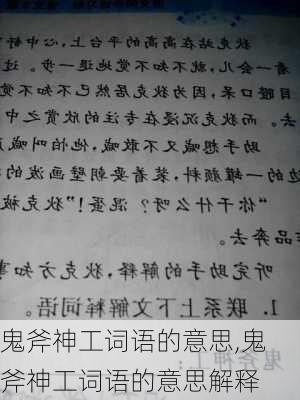 狄克站在高高的平台上，心中舒
着一会儿，就不知不觉地退一步。过
目瞪口呆，因为狄克居然已不知不觉
去。而狄克沉浸在专注的欣赏之中
助手想喊又不敢喊，他怕叫喊
边的一罐颜料，装着要朝壁画泼的
“你干什么呀？混蛋！”狄克被
作品奔去。
听完助手的解释，狄克方知事
1. 联系上下文解释词语。
鬼斧神工
鬼斧神工词语的意思,鬼
斧神工词语的意思解释